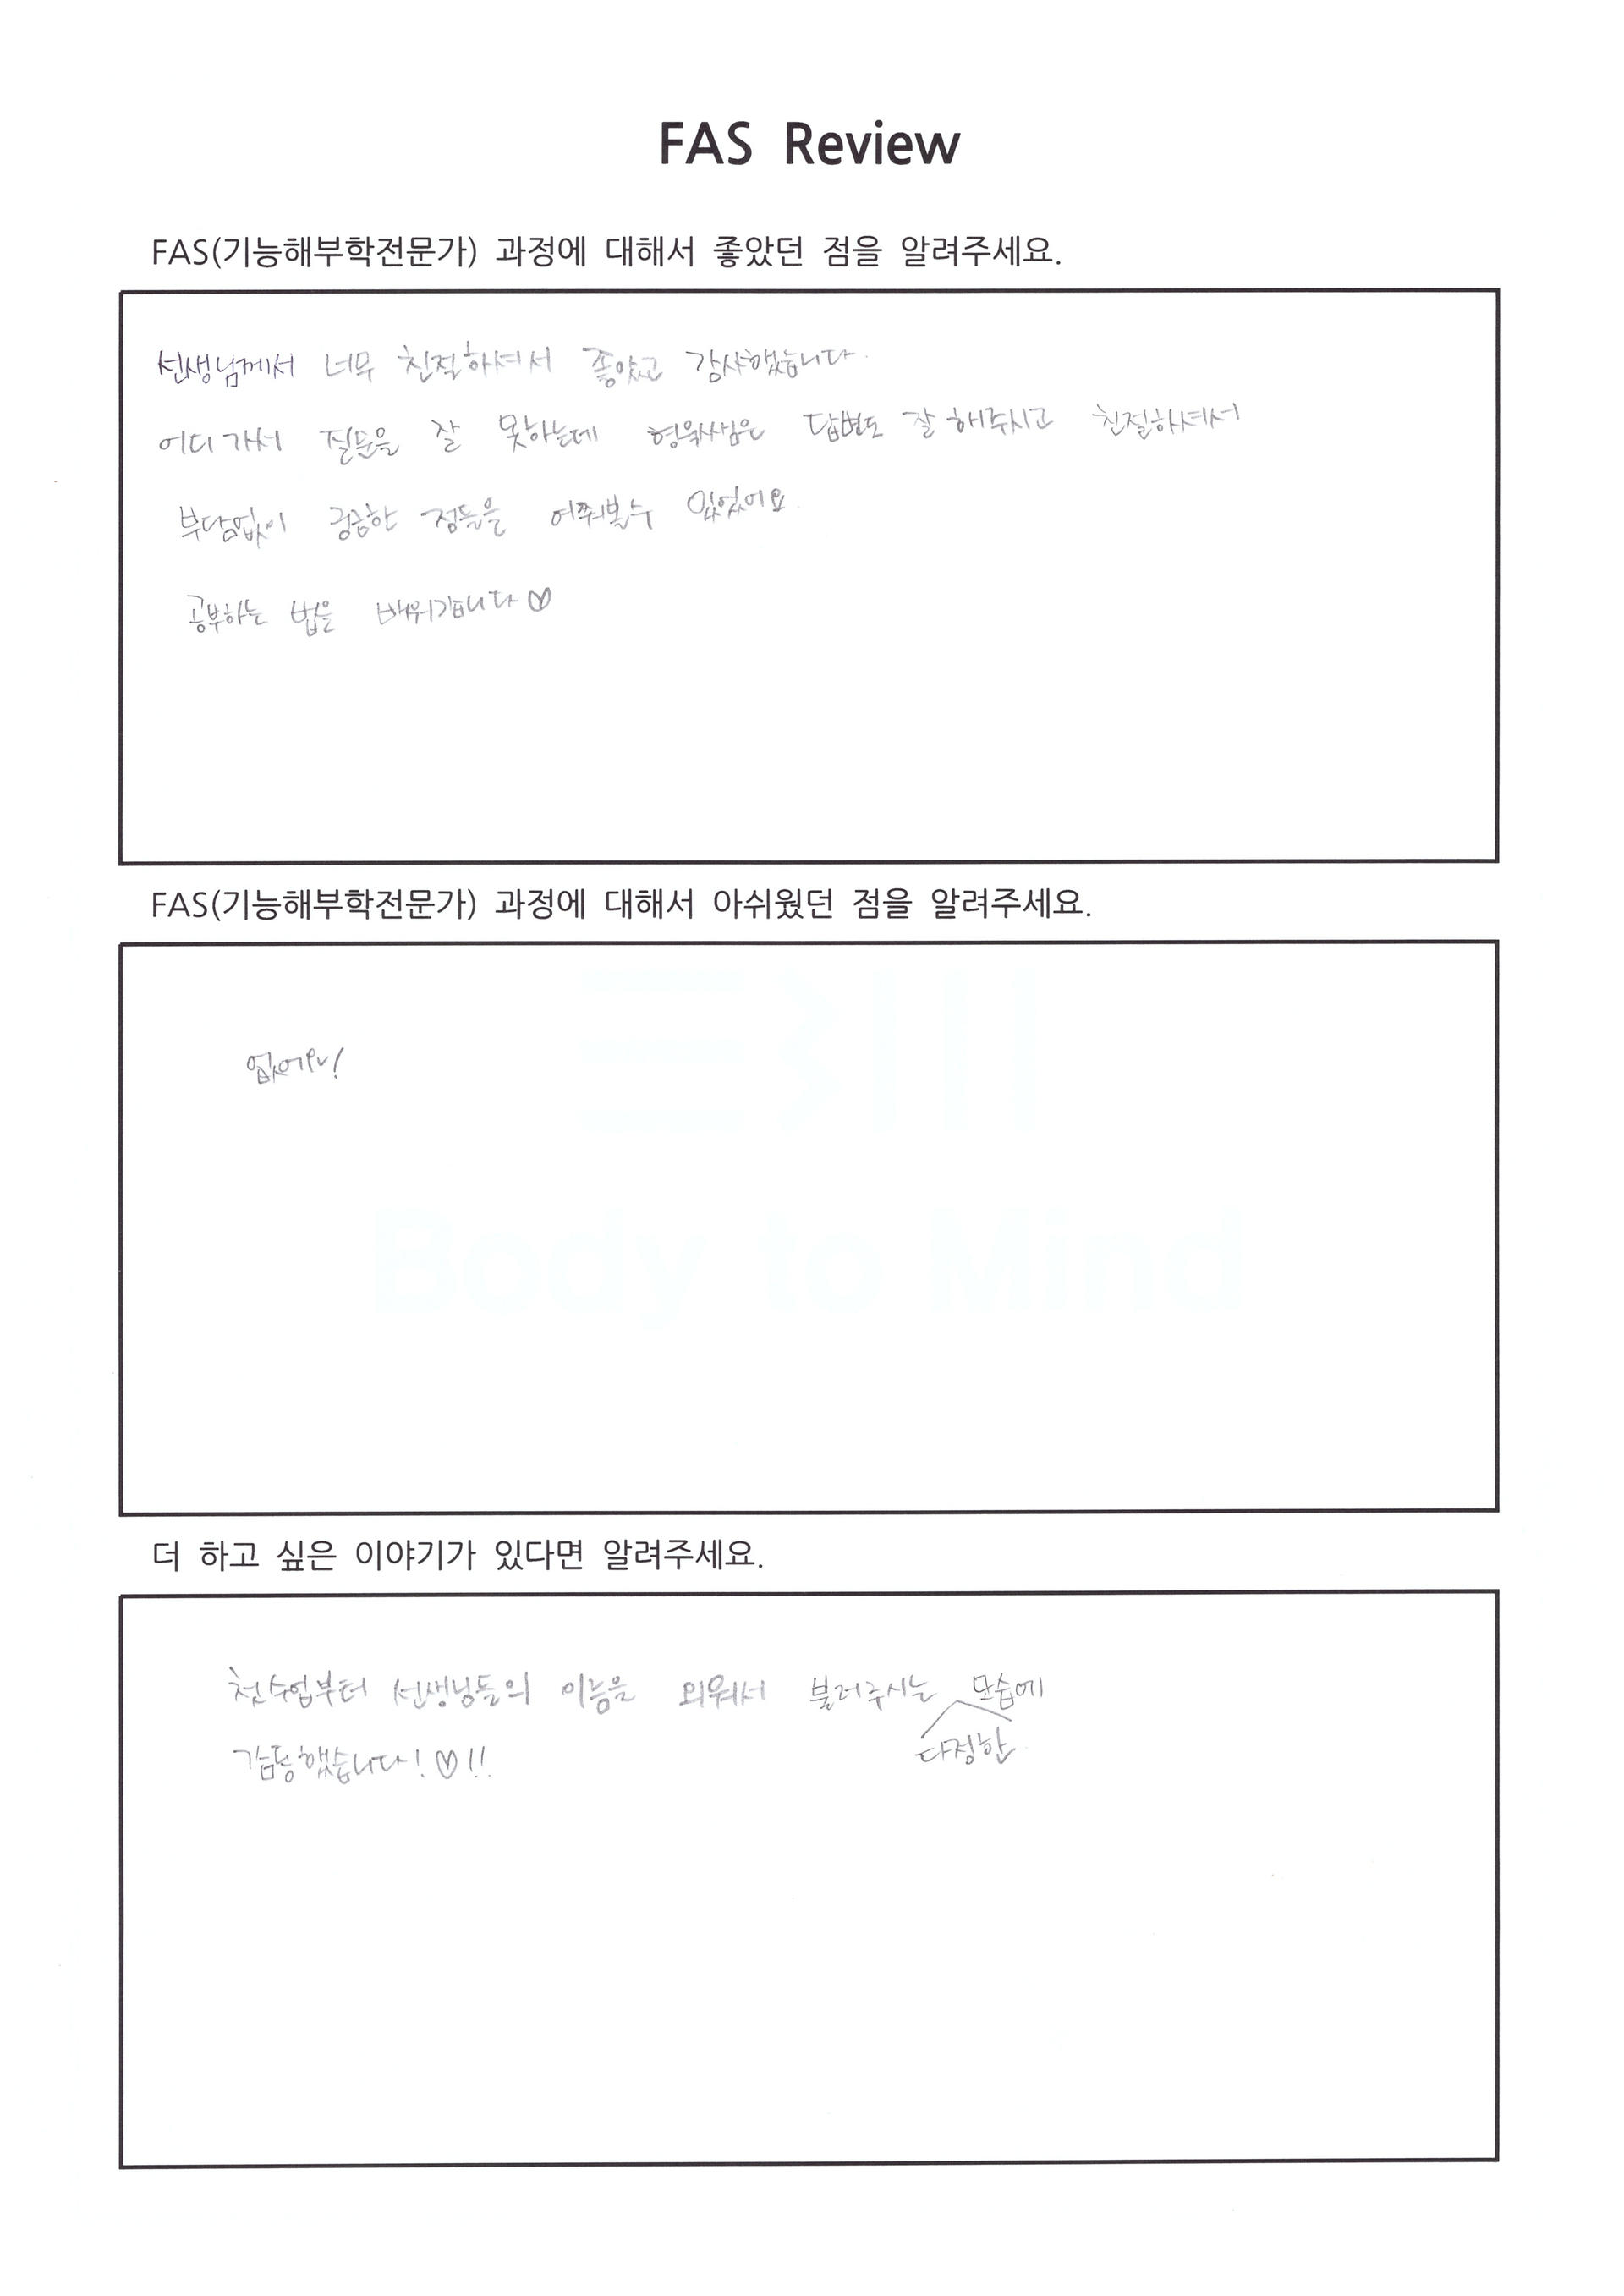 FAS Review
FAS(기능해부학전문가) 과정에 대해서 좋았던 점을 알려주세요.
선생님께서 너무 친절하셔서 좋았고 감사했습니다.
어디가서 질문을 잘 못하는데 형욱쌤은 답변도 잘 해주시고 친절하셔서
부담없이 궁금한 점들을 여쭤볼수 있었어요
공부하는 법을 배워갑니다♡
FAS(기능해부학전문가) 과정에 대해서 아쉬웠던 점을 알려주세요.
없어요!
Body to Mind
더 하고 싶은 이야기가 있다면 알려주세요.
첫수업부터 선생님들의 이름을 외워서 불러주시는 모습에
다정한
감동했습니다!♡!!